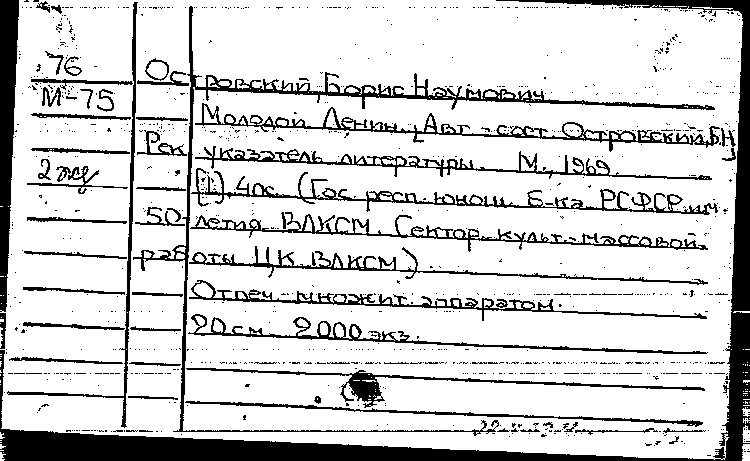 76
М-75
2 экз
Островский, Борис Наумович
Молодой Ленин. [Авт.-сост. Островский Б.Н.]
Рек. указатель литературы. М., 1969.
[1], 40с. (Гос. респ. юнош. б-ка РСФСР им.
50-летия ВЛКСМ. Сектор культ.-массовой
работы ЦК ВЛКСМ)
Отпеч. множит. аппаратом.
20 см. 2000 экз.